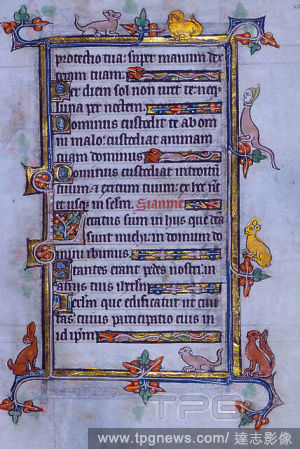 protectio tua: super manum dex
teram tuam.
Per diem sol non uret te neq;
luna per noctem.
Dominus custodit te ab om
ni malo: custodiat animam
tuam dominus
Dominus custodiat introitū
tuum et exitum tuum: ex hoc
et usq; in sclm.
Letatus sum in hiis que
sunt michi: in domum do
mini ibimus.
Stantes erant pedes nostri: in
atriis tuis ihrlm
Jerlm que edificatur ut civi
tas: cuius participatio eius in
idipm
TPG
www.tpgnews.com/達志影像